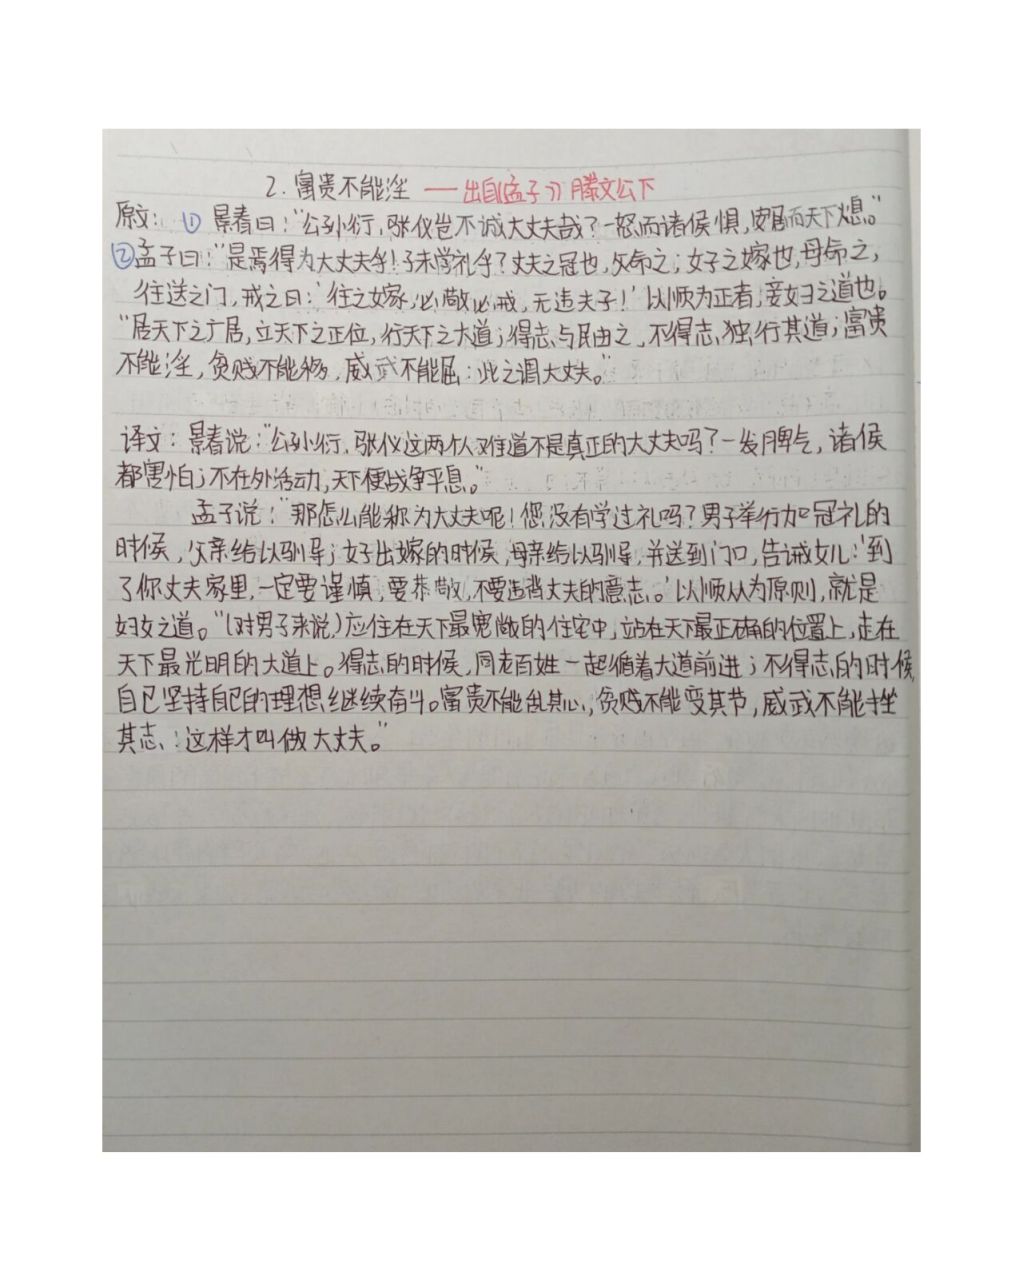 2.富贵不能淫 ——出自《孟子》滕文公下
原文:① 景春曰:“公孙衍,张仪岂不诚大丈夫哉?一怒而诸侯惧,安居而天下熄。”
②孟子曰:“是焉得为大丈夫乎!子未学礼乎?丈夫之冠也,父命之;女子之嫁也,母命之,
往送之门,戒之曰:‘往之女家,必敬必戒,无违夫子!’以顺为正者,妾妇之道也。
“居天下之广居,立天下之正位,行天下之大道;得志,与民由之,不得志,独行其道;富贵
不能淫,贫贱不能移,威武不能屈:此之谓大丈夫。”
译文:景春说:“公孙衍,张仪这两个人难道不是真正的大丈夫吗?一发脾气,诸侯
都害怕;不在外活动,天下便战争平息。”
孟子说:“那怎么能称为大丈夫呢!您没有学过礼吗?男子举行加冠礼的
时候,父亲给以驯导;女子出嫁的时候,母亲给以驯导,并送到门口,告诫女儿:‘到
了你丈夫家里,一定要谨慎,要恭敬,不要违背丈夫的意志。’以顺从为原则,就是
妇女之道。“(对男子来说)应住在天下最宽敞的住宅中,站在天下最正确的位置上,走在
天下最光明的大道上。得志的时候,同老百姓一起循着大道前进;不得志的时候,
自己坚持自己的理想,继续奋斗。富贵不能乱其心,贫贱不能变其节,威武不能挫
其志:这样才叫做大丈夫。”